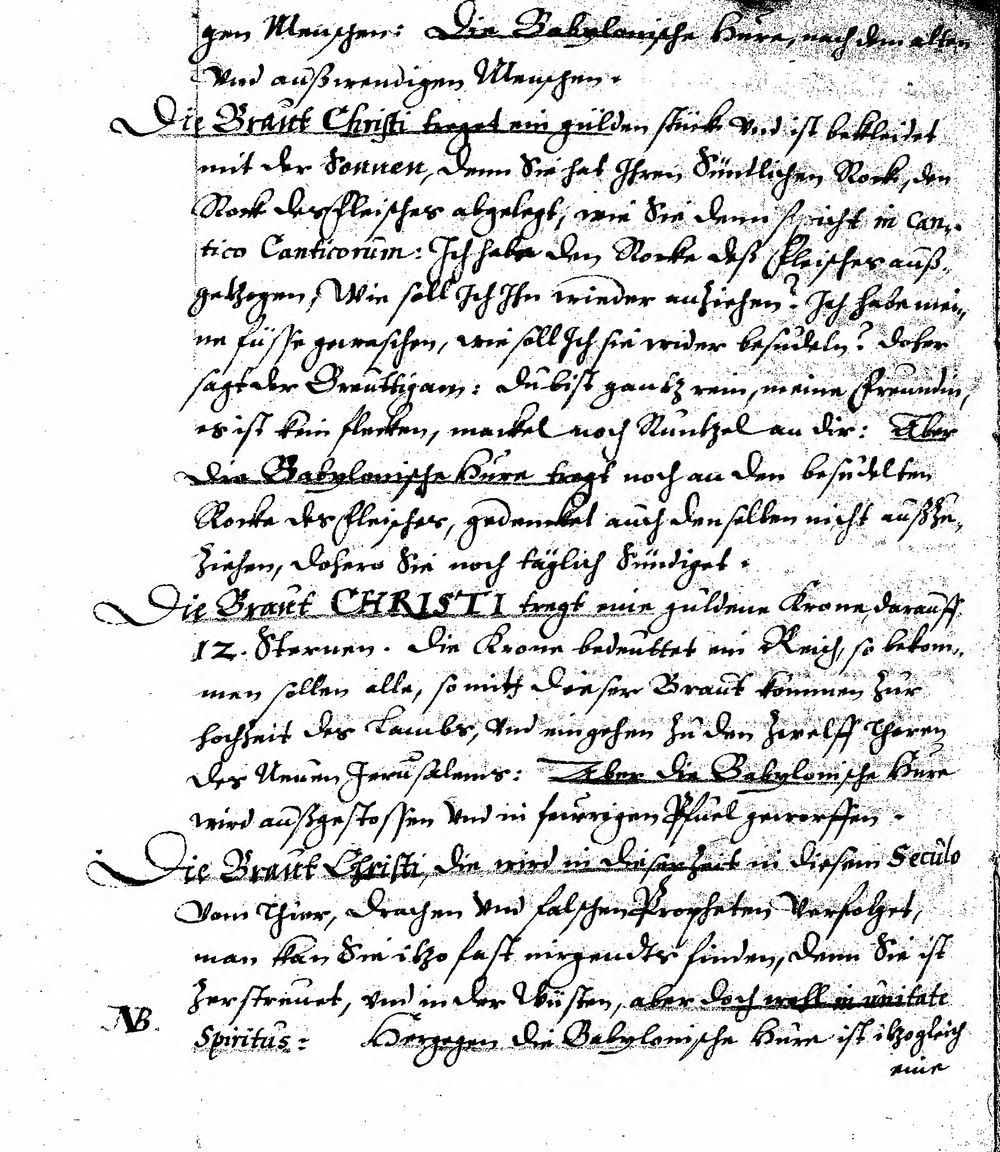 gen Menschen: Die Babylonische Hure, nach dem alten
Vnd außwendigen Menschen.
Die Braut Christi treget ein gülden stücke Vnd ist bekleidet
mit der Sonnen, denn Sie hat Ihren Süntlichen Rock, den
Rock des fleisches abgelegt, wie Sie denn spricht in Can-
tico Canticorum: Ich habe den Rocke deß fleisches auß-
getzogen, Wie soll Ich Ihn wieder anziehen? Ich habe mei-
ne füsse gewaschen, wie soll Ich sie wider besudeln? Doher
sagt der Breuttigam: du bist gantz rein, meine Freundin,
es ist kein flecken, mackel noch Runtzel an dir: Aber
die Babylonische Hure tregt noch an den besudelten
Rocke des fleisches, gedencket auch denselben nicht außzu-
ziehen, dohero Sie noch täglich Sündiget.
Die Braut CHRISTI tregt eine güldene Krone, darauff
12. Sternen. die Krone bedeuttet ein Reich, so bekom-
men sollen alle, so mitt dieser Braut kommen zur
hochzeit des Lambs, Vnd eingehen zu den zwelff Thoren
des Neuen Jerusalems: Aber die Babylonische Hure
wird außgestossen Vnd in feurigen Pfuel geworffen.
Die Braut Christi, die wird in dieser Zeit in diesem Seculo
Vom Thier, drachen Vnd falschen Propheten Verfolget,
man kan Sie itzo fast nirgendts finden, denn Sie ist
Zerstreuet, vnd in der Wüsten, aber doch wohl in unitate
NB. Spiritus: Hergegen die Babylonische Hure ist itzo gleich
eine